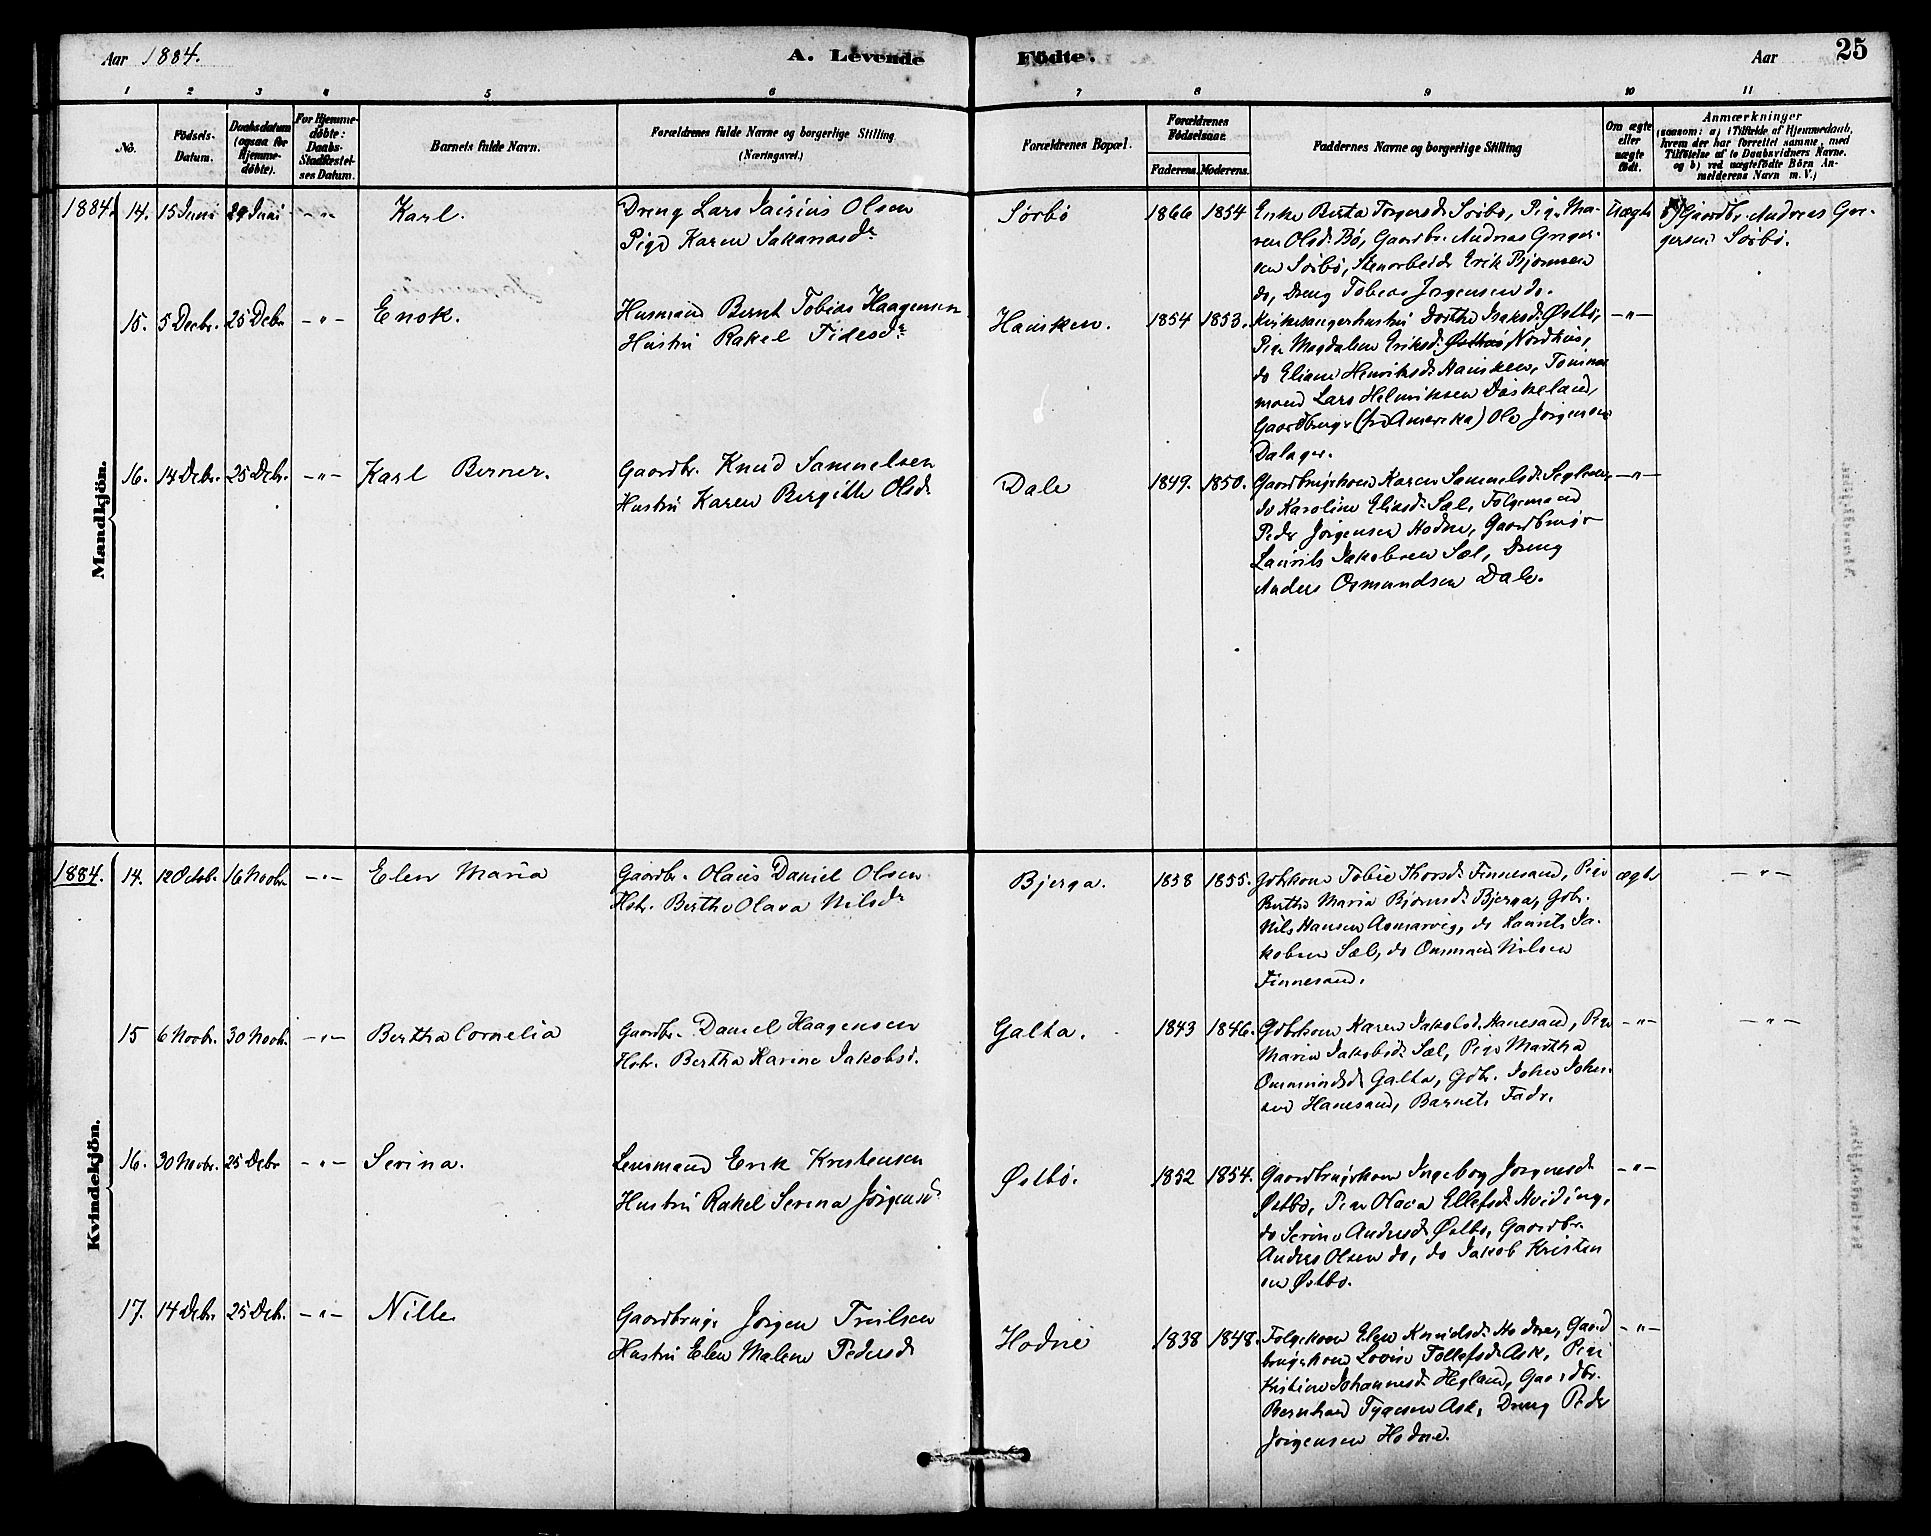 Aar 1884.
A. Levende
Födte.
Aar
25
1
2
3
4
5
6
7
8
9
10
11
No.
Födsels-
Datum.
Daabsdatum
(ogsaa for
Hjemme-
döbte).
For Hjemme-
döbte:
Daabs-
Stadfæstel-
ses Datum.
Barnets fulde Navn.
Forældrenes fulde Navne og borgerlige Stilling
(Næringsvei.)
Forældrenes Bopæl.
Forældrenes
Födselsaar.
Faderens.
Moderens.
Faddernes Navne og borgerlige Stilling
Om ægte
eller
uægte
födt.
Anmærkninger
(saasom: a) i Tilfælde af Hjemmedaab,
hvem der har forrettet samme, med
Tilföielse af to Daabsvidners Navne,
og b) ved uægtefödte Börn An-
melderens Navn m. V.)
Mandkjön.
1884. 14. 15 Juni 29 Juni -"- Karl.
Dreng Lars Jairius Olsen
Pige Karen Sakariasdr
Sørbø 1866 1854
Enke Berta Torgersd. Sørbø, Pige Ma-
ren Olsd. Bø, Gaardbr. Andreas Greger-
sen Sørbø, Stenarbeider Erik Bjørnsen
do, Dreng Tobias Jørgensen do.
Uægte
b) Gaardbr. Andreas Gre-
gersen Sørbø.
15. 5 Decbr. 25 Debr -"- Enok.
Husmand Bernt Tobias Haagensen
Hustru Rakel Tidesdr
Hausken. 1854 1853.
Kirkesangerhustru Dorthe Isaksd. Østbø,
Pige Magdalene Eriksd. Nordhus,
do Eliane Henriksd. Hausken, Tømmer
mand Lars Helmiksen Døskeland,
Gaardbruger (fra Amerika) Ole Jørgensen
Dalager.
-"-
16. 14 Debr. 25 Debr. -"- Karl Berner.
Gaardbr. Knud Samuelsen
Hustru Karen Birgitte Olsdr
Dale 1849. 1850.
Gaardbrugerkone Karen Samuelsd.
do Karoline Eliasd. Sæl, Følgemand
Peder Jørgensen Hodne, Gaardbruger
Laurits Jakobsen Sæl, Dreng
Anders Osmundsen Dale.
-"-
Kvindekjön.
1884. 14. 12 Octob. 16 Novbr. -"- Elen Maria
Gaardbr. Olaus Daniel Olsen
Hstr. Berthe Olava Nilsdr
Bjerga. 1858 1855.
Gdbrkone Tobie Thorsd. Finnesand, Pige
Berthe Maria Bjørnsd. Bjerga, Gdbr.
Nils Hansen Asmarvig, do Laurits Ja-
kobsen Sæl, do Ommund Nilsen
Finnesand.
ægte -"-
15 6 Novbr. 30 Novbr. -"- Bertha Cornelia
Gaardbr. Daniel Haagensen
Hstr. Bertha Karine Jakobsd.
Galta. 1843 1846.
Gdbrkone Karen Jakobsd. Hanesand, Pige
Maria Jakobsd. Sæl, Pige Martha
Ommundsd. Galta, Gdbr. John Johan-
sen Hanesand, Barnets Fader.
-"- -"-
16. 30 Novbr. 25 Debr -"- Serina.
Lensmand Erik Kristensen
Hustru Rakel Serina Jørgensdr
Østbø. 1852 1854.
Gaardbrugerkone Ingeborg Jørgensd.
Østbø, Pige Olava Ellefsd. Hviding,
do Serine Andersd. Østbø, Gaardbr.
Anders Olsen do, do Jakob Kristen
sen Østbø.
-"-
17. 14 Debr 25 Debr. -"- Nille
Gaardbruger Jørgen Truilsen
Hustru Elen Malene Pedersdr
Hodne 1838 1848.
Følgekone Elen Knudsd. Hodne, Gaard
brugerkone Lovise Tollefsd. Ask, Pige
Kristine Johannesd. Hegland, Gaardbr.
Bernhard Tygesen Ask, Dreng Peder
Jørgensen Hodne.
-"-